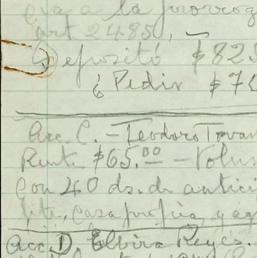 a la prorrog
art 2485,
Depositó $825
¿Pedir $76
Acc. C. - Teodoro Tovar
Renta $65.00 - Volun
con 40 ds. de antici
fte, casa propia, y ag
Acc. D. Elvira Reyes.